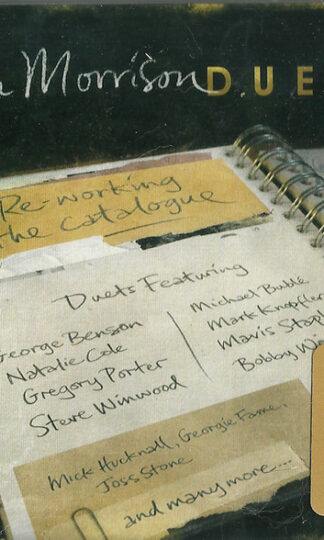 Morrison DUE
Re-working
the catalogue
Duets Featuring
George Benson
Natalie Cole
Gregory Porter
Steve Winwood
Michael Bublé
Mark Knopfler
Mavis Stapl
Bobby Wo
Mick Hucknall, Georgie Fame,
Joss Stone
and many more...